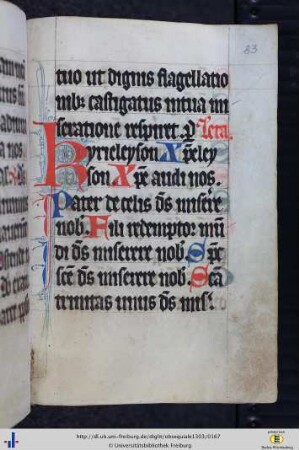 83
tuo ut dignis flagellatio
nibꝫ castigatus in tua mi
seratione respiret. P Leta.
Kyrieleyson Xp̄eley
son Xp̄e audi nos.
Pater de celis ds̄ misere
nob̄. Fili redemptor mū
di ds̄ miserere nob̄. Sp̄c
sc̄e ds̄ miserere nob̄. Sc̄a
trinitas unus ds̄ mis̄.
http://dl.ub.uni-freiburg.de/diglit/obsequiale1303/0167
© Universitätsbibliothek Freiburg